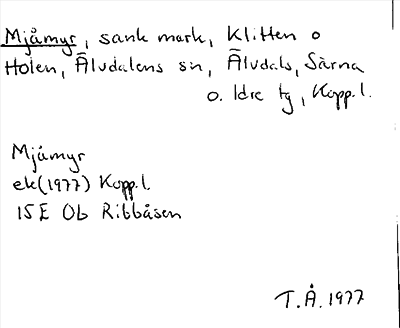 Mjåmyr, sank mark, Klitten o
Holen, Älvdalens sn, Älvdals, Särna
o. Idre tg, Kopp.l.
Mjåmyr
ek(1977) Kopp.l.
15E 0b Ribbåsen
T.Å. 1977